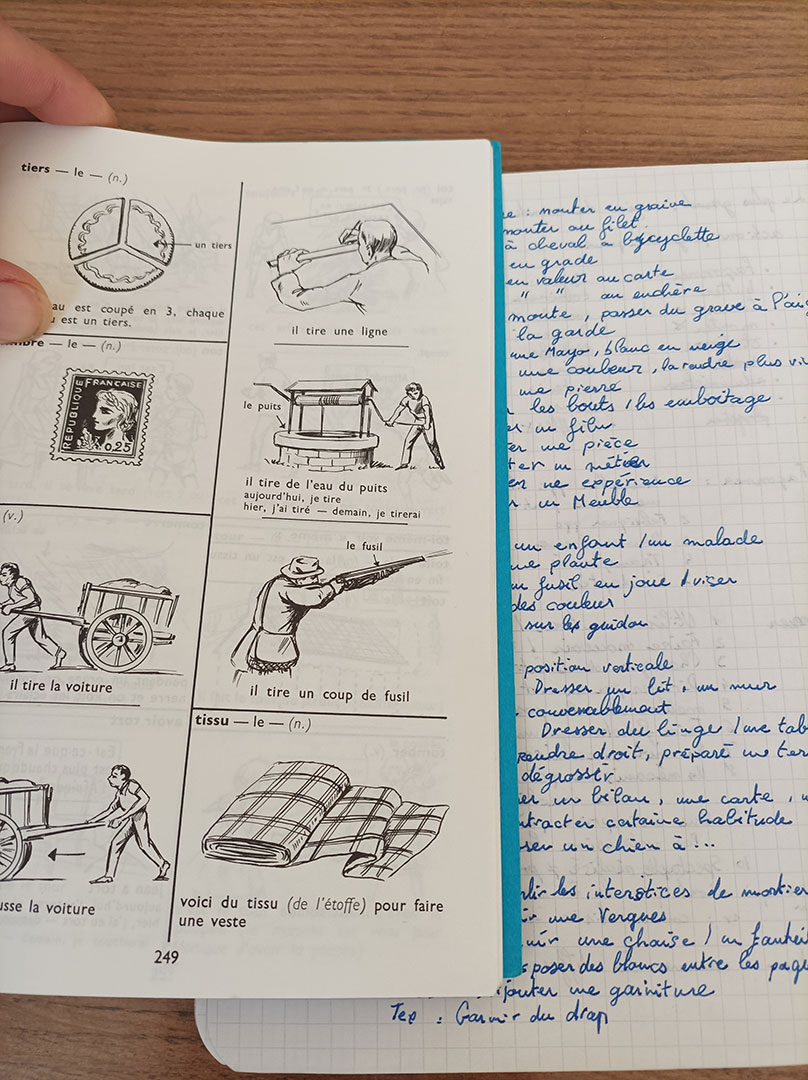 tiers — le — (n.)
un tiers
au est coupé en 3, chaque
u est un tiers.
mbre — le — (n.)
RÉPUBLIQUE FRANÇAISE
0,25
(v.)
il tire la voiture
usse la voiture
249
il tire une ligne
le puits
il tire de l'eau du puits
aujourd'hui, je tire
hier, j'ai tiré — demain, je tirerai
le fusil
il tire un coup de fusil
tissu — le — (n.)
voici du tissu (de l'étoffe) pour faire
une veste
: monter en graive
monter au filet
à cheval à bycyclette
en grade
en valeur au carte
" " au enchère
monte, passer du grave à l'aig
la garde
une Mayo, blanc en neige
une couleur, la rendre plus vi
une pierre
les bouts / les emboitage
un film
une pièce
un métier
ne expérience
un Meuble
un enfant / un malade
une plante
fusil en joue / viser
des couleur
sur les guidon
position verticale
Dresser un lit, un mur
convenablement
Dresser du linge / une tab
rendre droit, préparé une ter
dégrossir
un bilan, une carte,
ntracter certaine habitude
un chien à ...
les interstices de mortier
une Vergues
une chaise / un fauteui
poser des blancs entre les pag
jouter une garniture
Tex : Garnir du drap